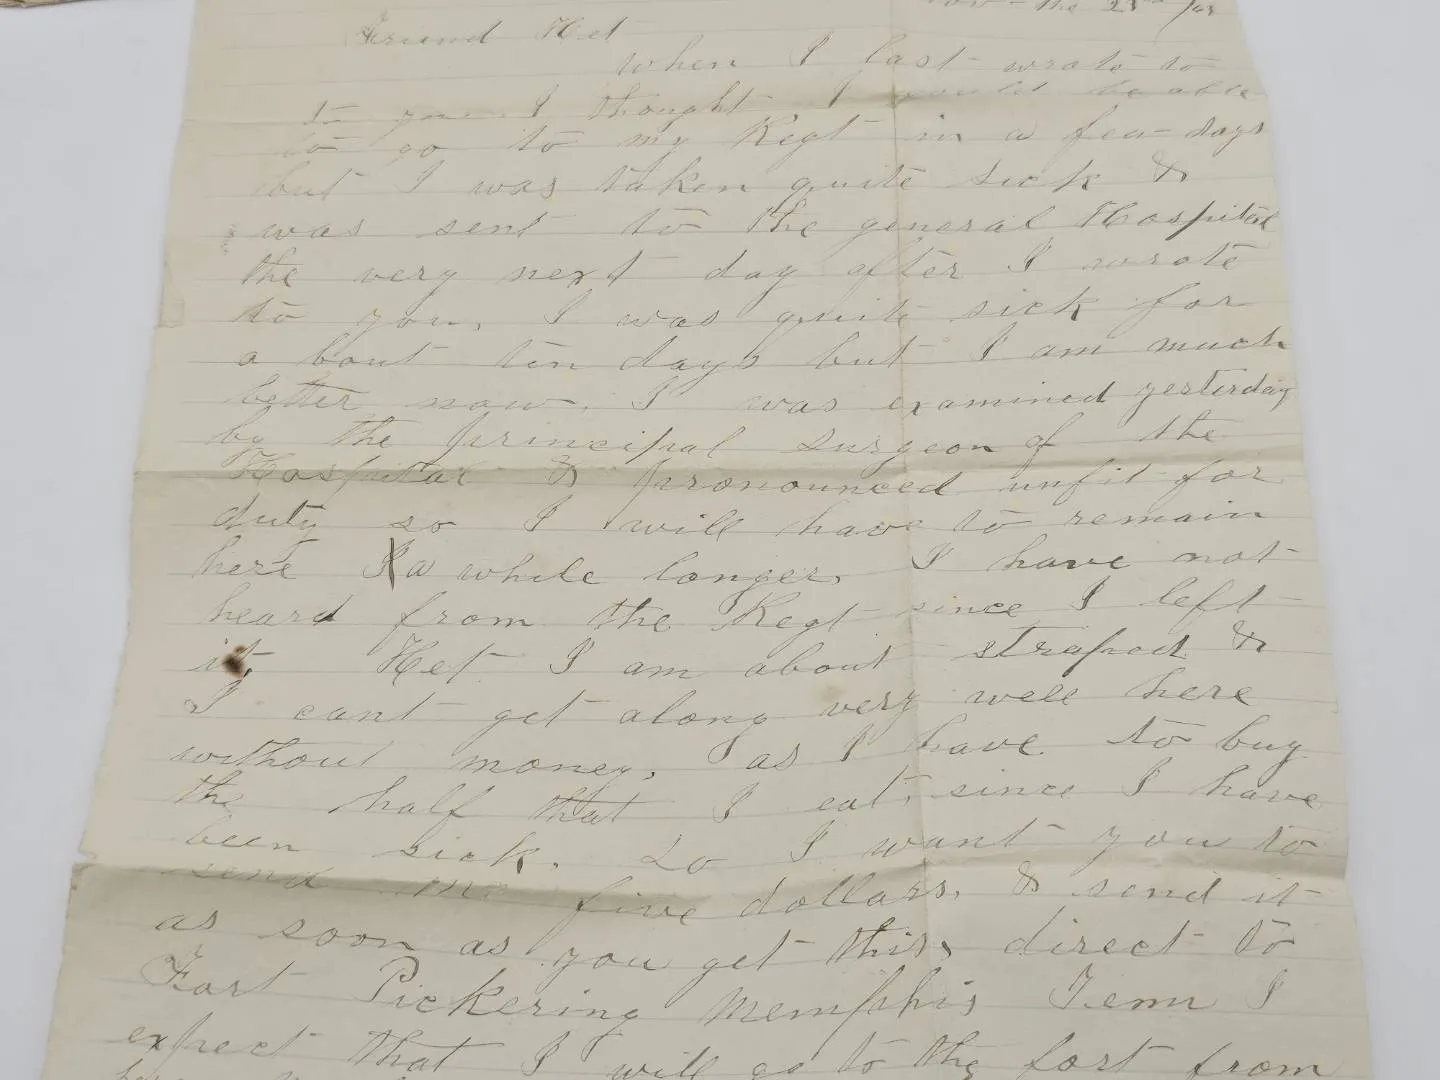 Nov - the 23rd /63
Friend Het
when I last wrote to
to you I thought I would be able
to go to my Regt in a few days
but I was taken quite sick &
was sent to the general Hospital
the very next day after I wrote
to you, I was quite sick for
a bout ten days but I am much
better now. I was examined yesterday
by the principal surgeon of the
Hospital & pronounced unfit for
duty so I will have to remain
here a while longer, I have not
heard from the Regt since I left
it, Het I am about straped &
I cant get along very well here
without money, as I have to buy
the half that I eat, since I have
been sick. So I want you to
send me five dollars, & send it
as soon as you get this, direct to
Fort Pickering Memphis Tenn I
expect that I will go to the fort from